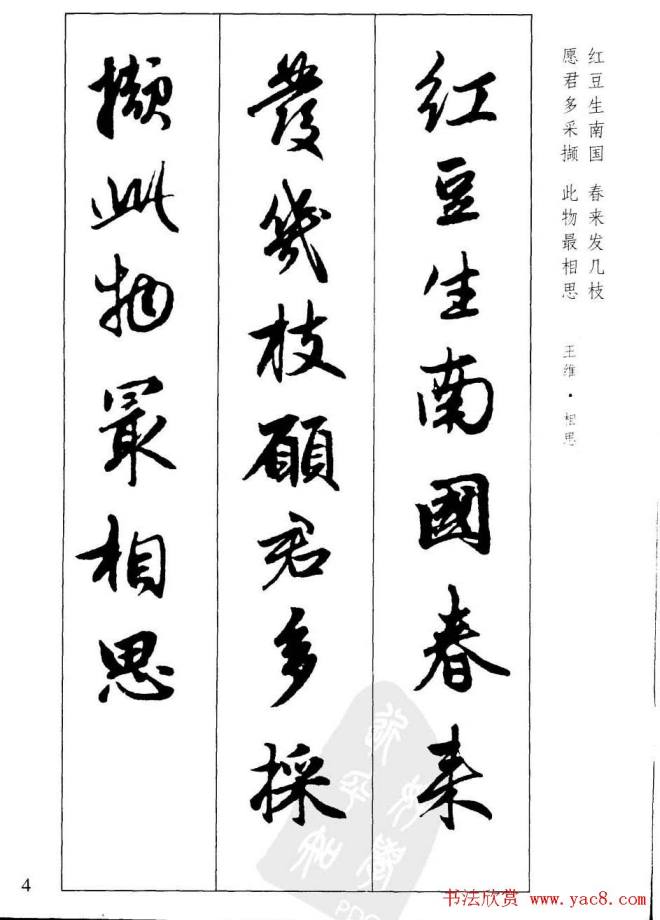 红豆生南国 春来发几枝
愿君多采撷 此物最相思
王维·相思
红豆生南國春来
發幾枝願君多採
撷此物最相思
4
书法欣赏 www.yac8.com